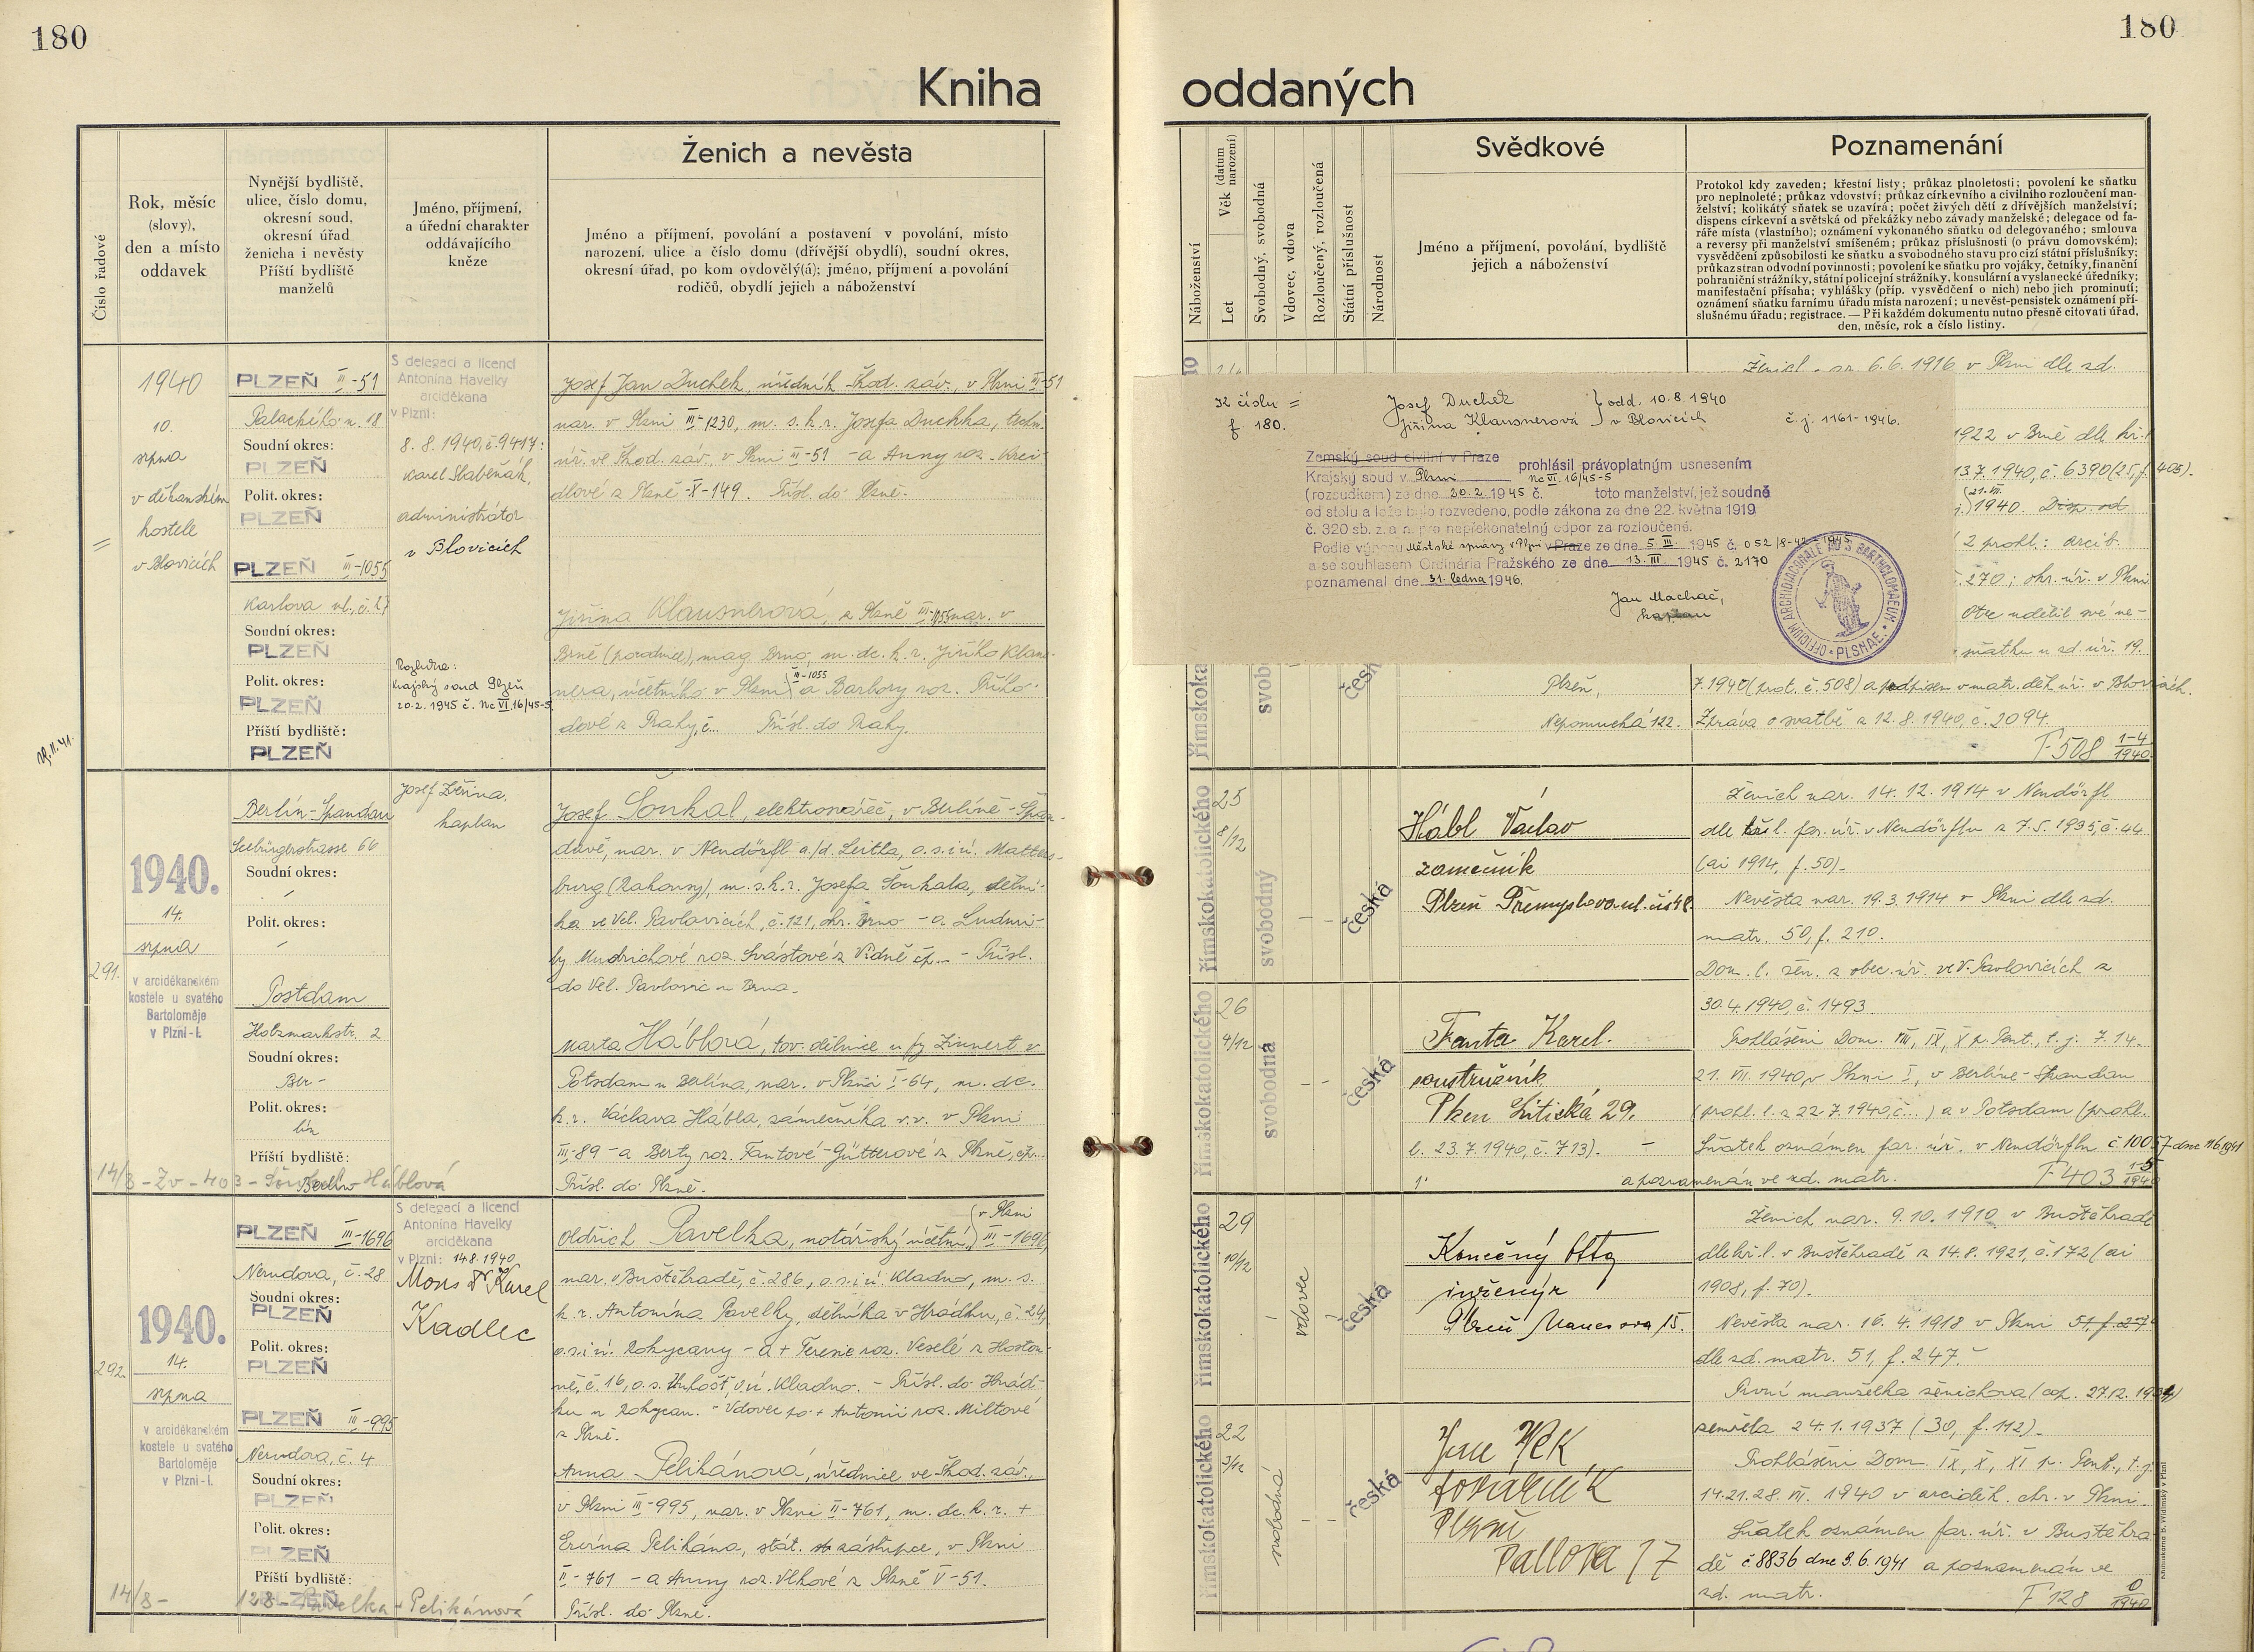 180
180
Kniha
oddaných
Číslo řadové
Rok, měsíc
(slovy),
den a místo
oddavek
Nynější bydliště,
ulice, číslo domu,
okresní soud,
okresní úřad
ženicha i nevěsty
Příští bydliště
manželů
Jméno, příjmení,
a úřední charakter
oddávajícího
kněze
Ženich a nevěsta
Jméno a příjmení, povolání a postavení v povolání, místo
narození, ulice a číslo domu (dřívější obydlí), soudní okres,
okresní úřad, po kom ovdovělý(á); jméno, příjmení a povolání
rodičů, obydlí jejich a náboženství
1940
10.
srpna
v děkanském
kostele
v Blovicích
PLZEŇ II-51
Palackého n. 18
Soudní okres:
PLZEŇ
Polit. okres:
PLZEŇ
PLZEŇ III-1055
Karlova ul., č. 27
Soudní okres:
PLZEŇ
Polit. okres:
PLZEŇ
Příští bydliště:
PLZEŇ
S delegací a licencí
Antonína Havelky
arciděkana
v Plzni:
8. 8. 1940, č. 9417:
Karel Slabeňák,
administrátor
v Blovicích
Rozlučka:
Krajský soud Plzeň
20.2. 1945 č. Nc VI 16/45-5.
Josef Jan Duchek, úředník Škod. záv., v Plzni II-51
nar. v Plzni III-1230, m. s. k. r. Josefa Duchka, techn.
úř. ve Škod. záv., v Plzni II-51 - a Anny roz. Krei-
dlové z Plzně -X-149. Přísl. do Plzně.
Jiřina Klausnerová, z Plzně III-1055 nar. v
Brně (porodnice), mag. Brno, m. dc. k. r. Jiřího Klaus-
nera, účetního v Plzni III-1055 a Barbory roz. Průho-
dové z Prahy, č... Přísl. do Prahy.
291.
1940.
14.
srpna
v arciděkanském
kostele u svatého
Bartoloměje
v Plzni-I.
Berlín-Spandau
Seebürgerstrasse 66
Soudní okres:
Polit. okres:
Postdam
Holzmarkstr. 2
Soudní okres:
Ber-
Polit. okres:
lín
Příští bydliště:
Berlín
14/8 - Zv - 403 - Soukal Háblová
Josef Žďrina,
kaplan
Josef Soukal, elektrosvářeč, v Berlíně-Špan-
davě, nar. v Neudörfl a./d. Leitha, o. s. i ú. Matters-
burg (Rakousy), m. s. k. r. Josefa Soukala, dělní-
ka ve Vel. Pavlovicích, č. 121, okr. Brno - a Ludmi-
ly Mudrichové roz. Svástové z Vídně čp. - Přísl.
do Vel. Pavlovic u Brna.
Marta Háblová, tov. dělnice u fy Zinnert v
Potsdam u Berlína, nar. v Plzni I-64, m. dc.
k. r. Václava Hábla, zámečníka v.v. v Plzni
III-89 - a Berty roz. Fantové-Gütterové z Plzně, čp..
Přísl. do Plzně.
292.
1940.
14.
srpna
v arciděkanském
kostele u svatého
Bartoloměje
v Plzni-I.
PLZEŇ III-1696
Nerudova, č. 28
Soudní okres:
PLZEŇ
Polit. okres:
PLZEŇ
PLZEŇ III-995
Nerudova, č. 4
Soudní okres:
PLZEŇ
Polit. okres:
PLZEŇ
Příští bydliště:
PLZEŇ
14/8 - 128 - Pavelka - Pelikánová
S delegací a licencí
Antonína Havelky
arciděkana
v Plzni: 14.8.1940
Mons Dr Karel
Kadlec
Oldřich Pavelka, notářský účetní, v Plzni III-1696,
nar. v Buštěhradě, č. 286, o. s. i ú. Kladno, m. s.
k. r. Antonína Pavelky, dělníka v Hrádku, č. 24,
o. s. i ú. Rokycany - a + Terezie roz. Veselé z Hostou-
ně, č. 16, o. s. Unhošť, o. ú. Kladno. - Přísl. do Hrád-
ku u Rokycan. - Vdovec po + Antonii roz. Miltové
z Plzně.
Anna Pelikánová, úřednice ve Škod. záv.,
v Plzni III-995, nar. v Plzni II-761, m. dc. k. r. +
Ervína Pelikána, stát. zástupce, v Plzni
II-761 - a Anny roz. Vlkové z Plzně V-51.
Přísl. do Plzně.
Náboženství
Věk (datum narození)
Let
Svobodný, svobodná
Vdovec, vdova
Rozloučený, rozloučená
Státní příslušnost
Národnost
Svědkové
Jméno a příjmení, povolání, bydliště
jejich a náboženství
Poznamenání
Protokol kdy zaveden; křestní listy; průkaz plnoletosti; povolení ke sňatku
pro neplnoleté; průkaz vdovství; průkaz církevního a civilního rozloučení man-
želství; kolikátý sňatek se uzavírá; počet živých dětí z dřívějších manželství;
dispens církevní a světská od překážky nebo závady manželské; delegace od fa-
ráře místa (vlastního); oznámení vykonaného sňatku od delegovaného; smlouva
a reversy při manželství smíšeném; průkaz příslušnosti (o právu domovském);
vysvědčení způsobilosti ke sňatku a svobodného stavu pro cizí státní příslušníky;
průkaz stran odvodní povinnosti; povolení ke sňatku pro vojáky, četníky, finanční
pohraniční strážníky, státní policejní strážníky, konsulární a vyslanecké úředníky;
manifestační přísaha; vyhlášky (příp. vysvědčení o nich) nebo jich prominutí;
oznámení sňatku farnímu úřadu místa narození; u nevěst-pensistek oznámení pří-
slušnému úřadu; registrace. — Při každém dokumentu nutno přesně citovati úřad,
den, měsíc, rok a číslo listiny.
6.6.1916 v Plzni dle zd.
K číslu =
f 180.
Josef Duchek
Jiřina Klausnerová
odd. 10.8.1940
v Blovicích
č. j. 1161-1946.
Zemský soud civilní v Praze
Krajský soud v Plzni
prohlásil právoplatným usnesením
Nc VI. 16/45-5
(rozsudkem) ze dne 20.2.1945 č. toto manželství, jež soudně
od stolu a lože bylo rozvedeno, podle zákona ze dne 22. května 1919
č. 320 sb. z. a n. pro nepřekonatelný odpor za rozloučené.
Podle výnosu Městské správy v Plzni v Praze ze dne 5. III. 1945 č. 052/8-42-1945
a se souhlasem Ordinária Pražského ze dne 13. III. 1945 č. 2170
poznamenal dne 31. ledna 1946.
Jan Machač,
kaplan
OFFICIUM ARCHIDIACONALE AD S. BARTHOLOMAEUM • PLSNAE.
1922 v Brně dle kř. l.
13.7.1940, č. 6390 (25, f. 405).
1940. Disp. od
2 prohl.: arcib.
270; okr. úř. v Plzni
Otec udělil své ne-
sňatku u zd. úř. 19.
Plzeň,
Nepomucká 122.
7.1940 (prot. č. 508) a podpisem v matr. děk. úř. v Blovicích.
Zpráva o svatbě z 12.8.1940, č. 2094.
F 508 1-4/1940
římskokatolického
25
8/12
svobodný
česká
Hábl Václav
zámečník
Plzeň Přemyslova ul. čís 48
Ženich nar. 14.12.1914 v Neudörfl
dle křl. far. úř. v Neudörflu z 7.5.1935, č. 44
(ai 1914, f. 50).
Nevěsta nar. 19.3.1914 v Plzni dle zd.
matr. 50, f. 210.
Dom. l. žen. z obec. úř. ve V. Pavlovicích z
30.4.1940, č. 1493.
římskokatolického
26
4/12
svobodná
česká
Fanta Karel.
soustružník
Plzeň Litická 29.
Prohlášení Dom. VIII, IX, X p. Pent., t. j. 7.14.
21. VII. 1940, v Plzni I, v Berlíne-Spandau
(prohl. l. z 22.7.1940, č...) a v Potsdam (prohl.
l. 23.7.1940, č. 713). - Sňatek oznámen far. úř. v Neudörflu č 10057 dne 11.6.1941
a poznamenán ve zd. matr.
F 403 1-5/1940
římskokatolického
29
10/12
vdovec
česká
Konečný Otto
inženýr
Plzeň Manesova 15.
Ženich nar. 9.10.1910 v Buštěhradě
dle kř. l. v Buštěhradě z 14.8.1921, č. 172 (ai
1908, f. 70).
Nevěsta nar. 16.4.1918 v Plzni 51, f. 27
dle zd. matr. 51, f. 247.
První manželka ženichova (cop. 27.12.1934)
zemřela 24.1.1937 (30, f. 112).
římskokatolického
22
3/12
svobodná
česká
Jan Vlk
továrník
Plzeň
Pallova 17
Prohlášení Dom. IX, X, XI p. Pent., t. j.
14.21.28. VII. 1940 v arciděk. chr. v Plzni.
Sňatek oznámen far. úř. v Buštěhra-
dě č 8836 dne 9.6.1941 a poznamenán ve
zd. matr.
F 128 0/1940